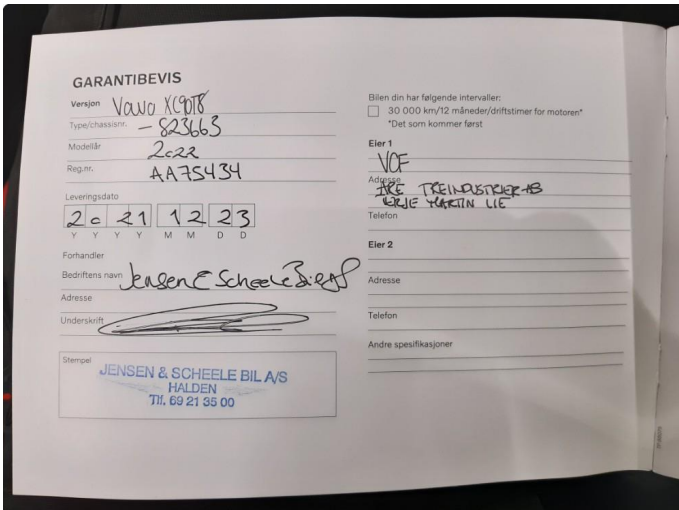 GARANTIBEVIS
Versjon Volvo XC90T8
Type/chassisnr. - 823663
Modellår 2022
Reg.nr. AA75434
Leveringsdato
2021 12 23
Y Y Y Y M M D D
Forhandler
Bedriftens navn Jensen & Scheele Bil AS
Adresse
Underskrift
Stempel
JENSEN & SCHEELE BIL A/S
HALDEN
Tlf. 69 21 35 00
Bilen din har følgende intervaller:
30 000 km/12 måneder/driftstimer for motoren*
*Det som kommer først
Eier 1
VCF
Adresse
ÅRE TREINDUSTRIER AB
MARTIN LIE
Telefon
Eier 2
Adresse
Telefon
Andre spesifikasjoner